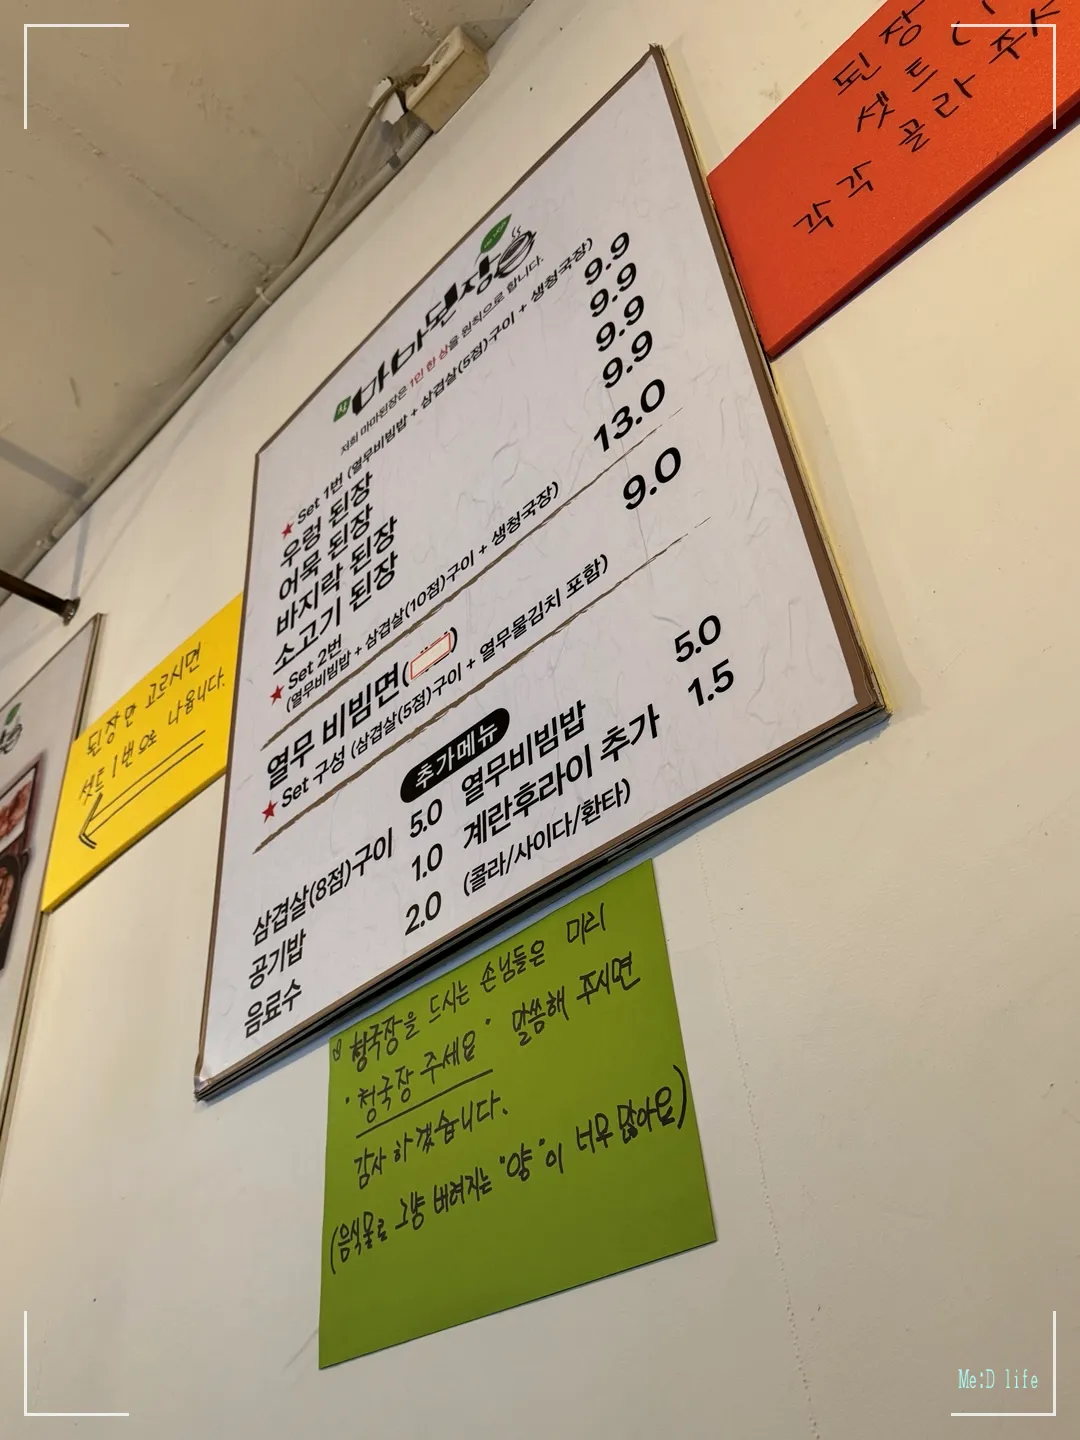 마마된장
저희 마마된장은 1인 한 상을 원칙으로 합니다.
★ Set 1번 (열무비빔밥 + 삼겹살(5점)구이 + 생청국장)
우렁 된장 9.9
어묵 된장 9.9
바지락 된장 9.9
소고기 된장 9.9
★ Set 2번 13.0
(열무비빔밥 + 삼겹살(10점)구이 + 생청국장)
열무 비빔면( ) 9.0
★ Set 구성 (삼겹살(5점)구이 + 열무물김치 포함)
추가메뉴
삼겹살(8점)구이 5.0 열무비빔밥 5.0
공기밥 1.0 계란후라이 추가 1.5
음료수 2.0 (콜라/사이다/환타)
된장만 고르시면
셋트 1번으로 나옵니다.
된장
셋트
각각 골라 주시
청국장을 드시는 손님들은 미리
"청국장 주세요" 말씀해 주시면
감사하겠습니다.
(음식물로 그냥 버려지는 "양"이 너무 많아요)
Me:D life